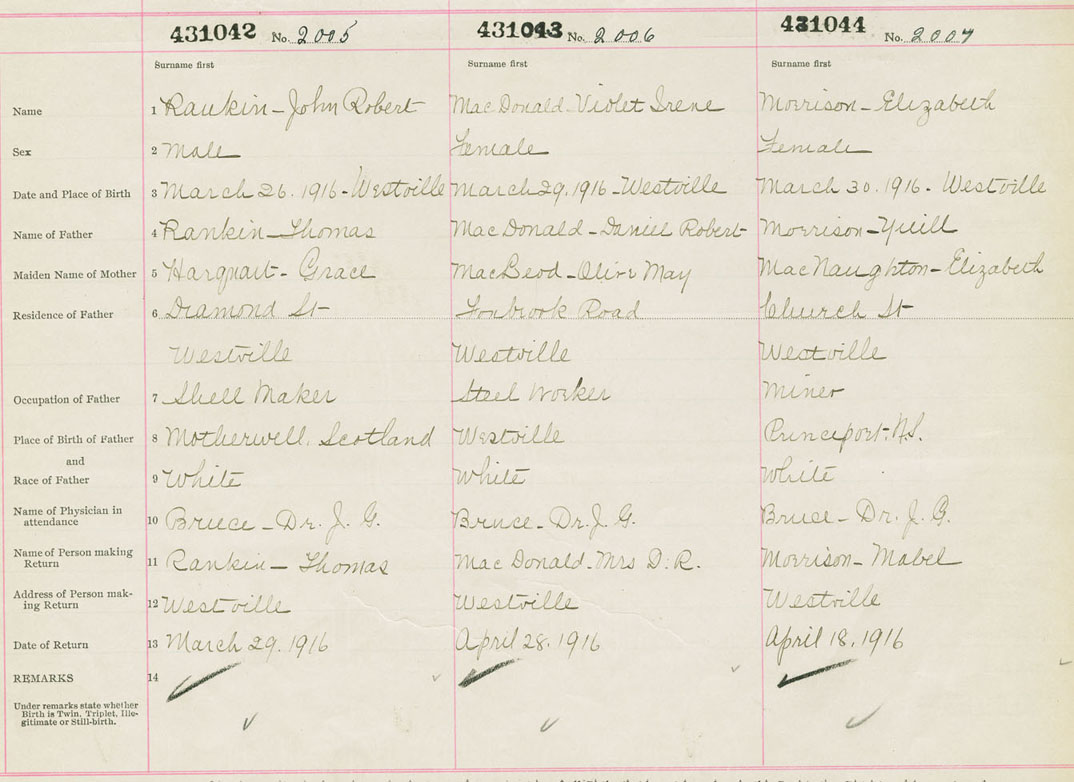 431042 No. 2005 431043 No. 2006 431044 No. 2007
Surname first Surname first Surname first
Name 1 Rankin - John Robert MacDonald - Violet Irene Morrison - Elizabeth
Sex 2 Male Female Female
Date and Place of Birth 3 March 26. 1916 - Westville March 29. 1916 - Westville March 30. 1916 - Westville
Name of Father 4 Rankin - Thomas MacDonald - Daniel Robert Morrison - Yuill
Maiden Name of Mother 5 Grace MacLeod - Olive May MacNaughton - Elizabeth
Residence of Father 6 Diamond St Foxbrook Road Church St
Westville Westville Westville
Occupation of Father 7 Shell Maker Steel Worker Miner
Place of Birth of Father 8 Motherwell, Scotland Westville Princeport. N.S.
and
Race of Father 9 White White White
Name of Physician in
attendance 10 Bruce - Dr. J. G. Bruce - Dr. J. G. Bruce - Dr. J. G.
Name of Person making
Return 11 Rankin - Thomas MacDonald - Mrs D. R. Morrison - Mabel
Address of Person mak-
ing Return 12 Westville Westville Westville
Date of Return 13 March 29. 1916 April 28. 1916 April 18. 1916
REMARKS 14
Under remarks state whether
Birth is Twin, Triplet, Ille-
gitimate or Still-birth.